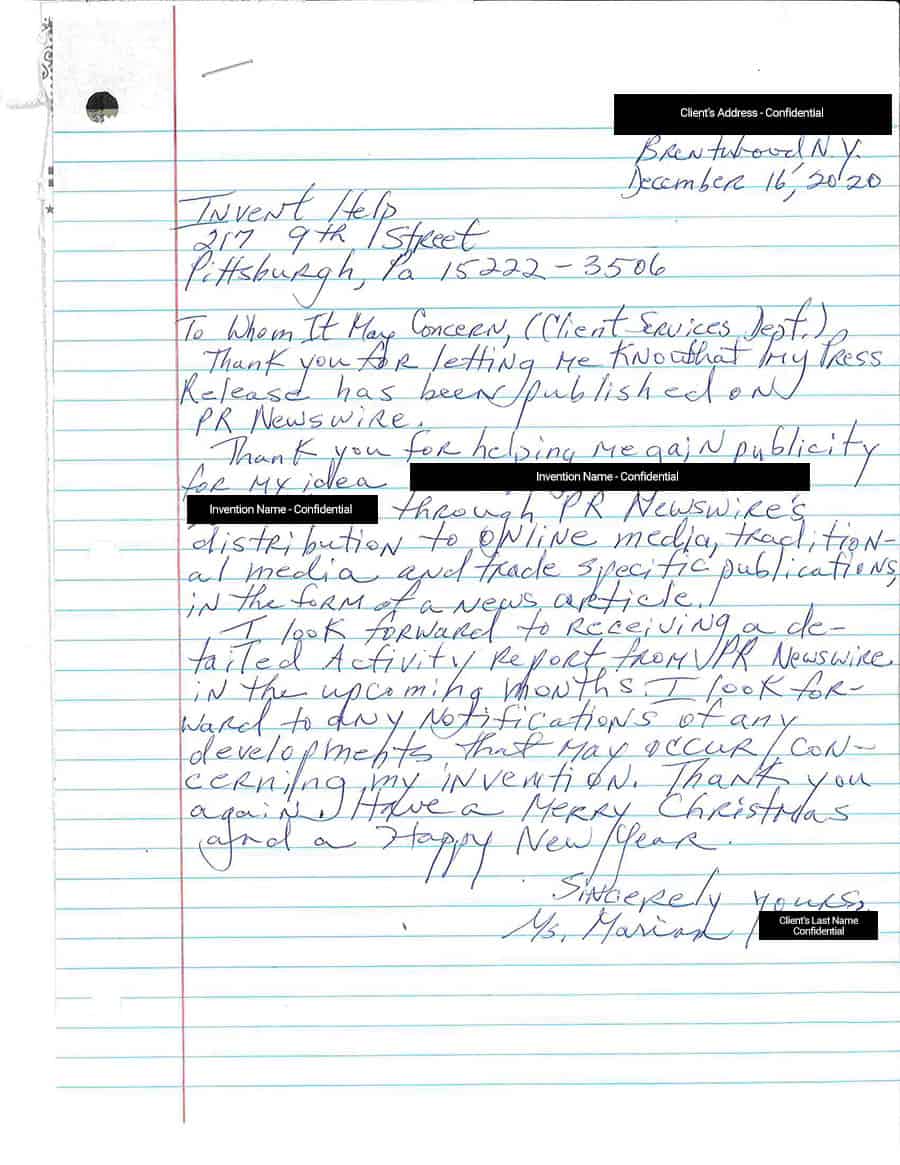 Client's Address - Confidential
Brentwood N.Y.
December 16, 2020
Invent Help
217 9th Street
Pittsburgh, Pa 15222-3506
To Whom It May Concern, (Client Services Dept.)
Thank you for letting me know that my Press
Release has been published on
PR Newswire.
Thank you for helping me gain publicity
for my idea Invention Name - Confidential
Invention Name - Confidential through PR Newswire's
distribution to online media, tradition-
al media and trade specific publications,
in the form of a news article.
I look forward to receiving a de-
tailed Activity Report from PR Newswire
in the upcoming months. I look for-
ward to any notifications of any
developments that may occur con-
cerning my invention. Thank you
again. Have a Merry Christmas
and a Happy New Year.
Sincerely yours,
Ms. Marian Client's Last Name
Confidential